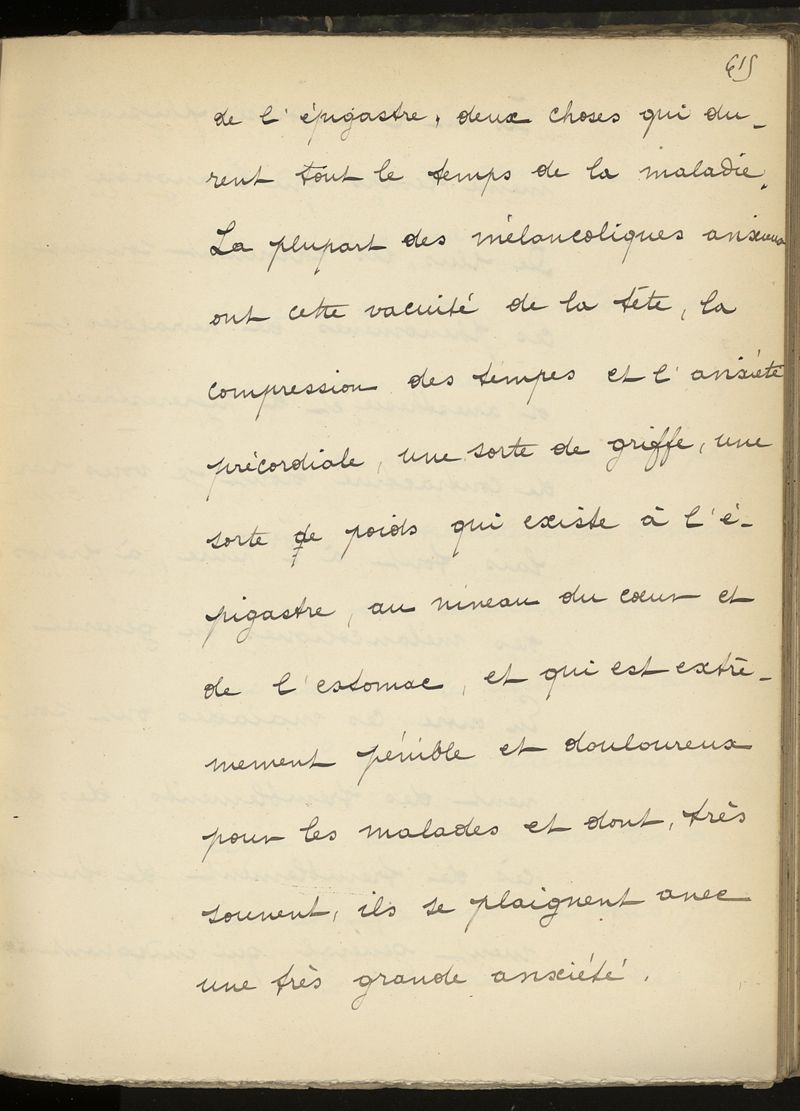 615
de l'épigastre, deux choses qui du-
rent tout le temps de la maladie.
La plupart des mélancoliques anxieux
ont cette vacuité de la tête, la
compression des tempes et l'anxiété
précordiale, une sorte de griffe, une
sorte de poids qui existe à l'é-
pigastre, au niveau du cœur et
de l'estomac, et qui est extrê-
mement pénible et douloureux
pour les malades et dont, très
souvent, ils se plaignent avec
une très grande anxiété.